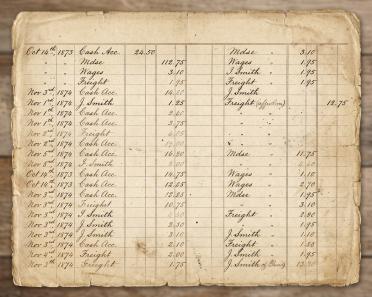 Oct 14th, 1873 Cash Acc. 24.50 Mdse " 3.10
" " " Mdse 112.75 Wages " 1.95
" " " Wages 3.10 I. Smith " 1.95
" " " Freight 1.95 Freight " 1.95
Nov 3rd, 1874 Cash Acc. J. Smith
Nov 1st 1874 J. Smith 1.25 Freight 12.75
Nov 1st 1874 Cash Acc. " "
Nov 2nd 1874 Cash Acc. 2.75 " "
Nov 2nd 1874 Freight " "
Nov 2nd 1874 Cash Acc. " "
Nov 5th 1874 Cash Acc. 14.20 Mdse " 11.75
Nov 5th 1874 I. Smith " "
Oct 14th 1873 Cash Acc. 14.75 Wages " 1.10
Oct 14th 1873 Cash Acc. 12.25 Wages " 2.70
Nov 3rd 1874 Cash Acc. 12.25 Mdse " 1.95
Nov 3rd 1874 Freight 10.75 " " 3.10
Nov 3rd 1874 I Smith Freight " 2.80
Nov 3rd 1874 J. Smith 2.30 " " 1.95
Nov 3rd 1874 J. Smith 3.10 J. Smith " 1.10
Nov 3rd 1874 Cash Acc. 2.10 Freight "
Nov 4th 1874 Freight 2.00 J. Smith " 1.95
1874 Freight 1.75 J. Smith